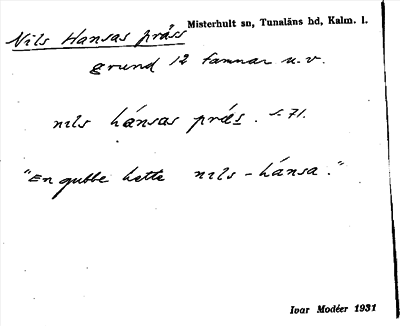 Nils Hansas präss
Misterhult sn, Tunaläns hd, Kalm. l.
grund 12 famnar u.v.
nils hánsas präs. s. 71.
"En gubbe hette nils-hánsa."
Ivar Modéer 1931